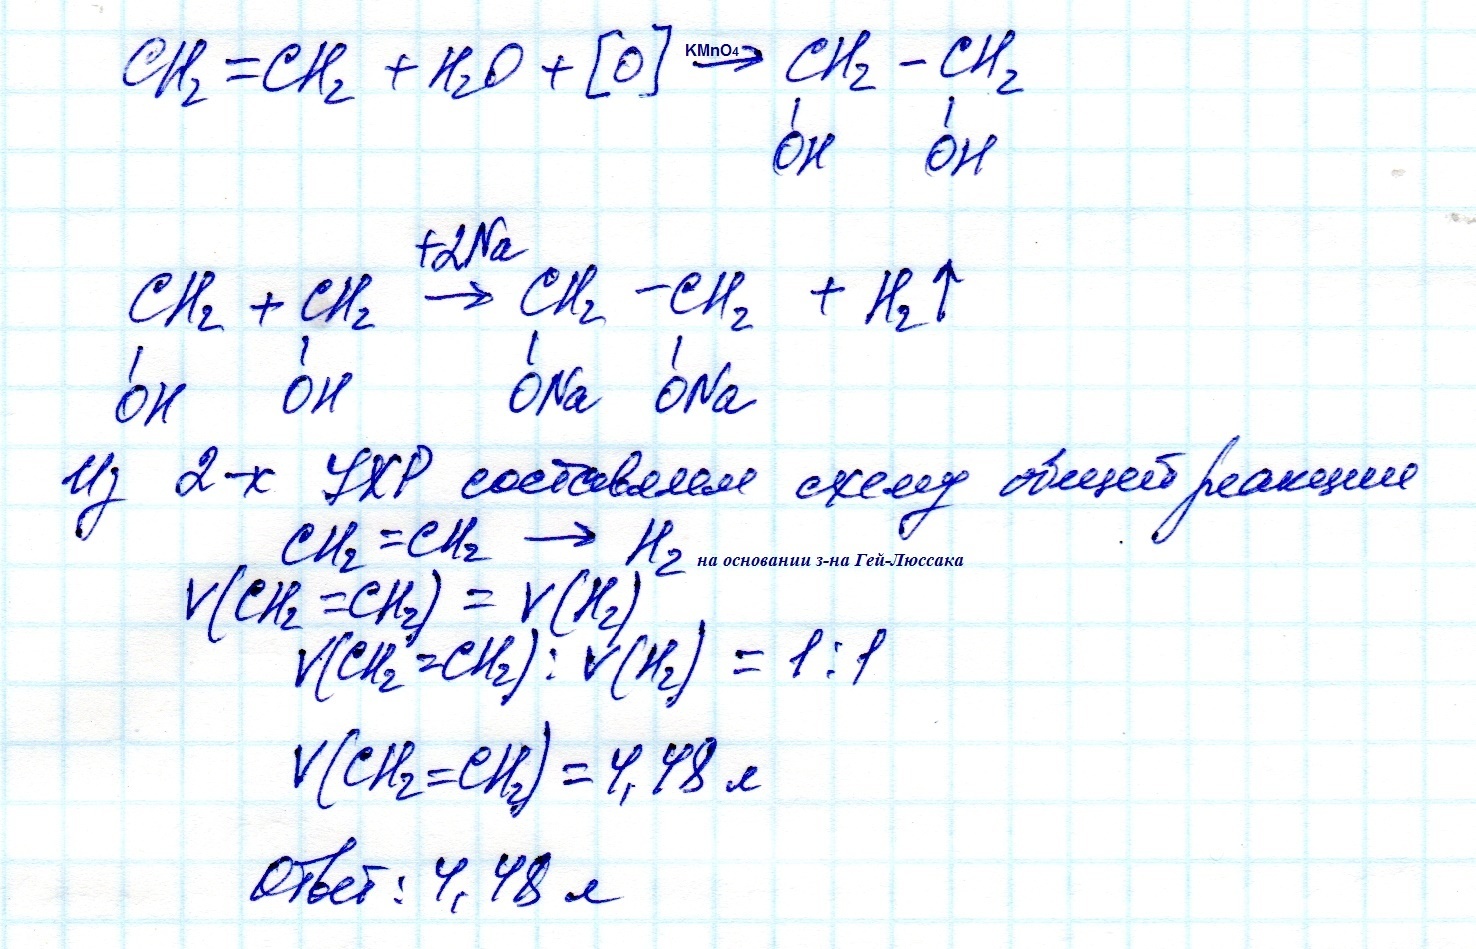 CH₂=CH₂ + H₂O + [O] KMnO₄→ CH₂-CH₂
OH OH
+2Na
CH₂ + CH₂ → CH₂-CH₂ + H₂↑
OH OH ONa ONa
Из 2-х УХР составляем схему общей реакции
CH₂=CH₂ → H₂ на основании з-на Гей-Люссака
V(CH₂=CH₂) = V(H₂)
V(CH₂=CH₂) : V(H₂) = 1 : 1
V(CH₂=CH₂) = 4,48 л
Ответ: 4,48 л